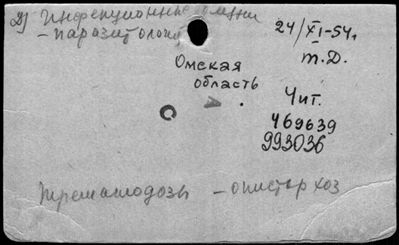 2) Инфекционные болезни
- паразитология
24/XI-54г.
т.Д.
Омская
область
Чит.
469639
993036
Трематодозы - описторхоз